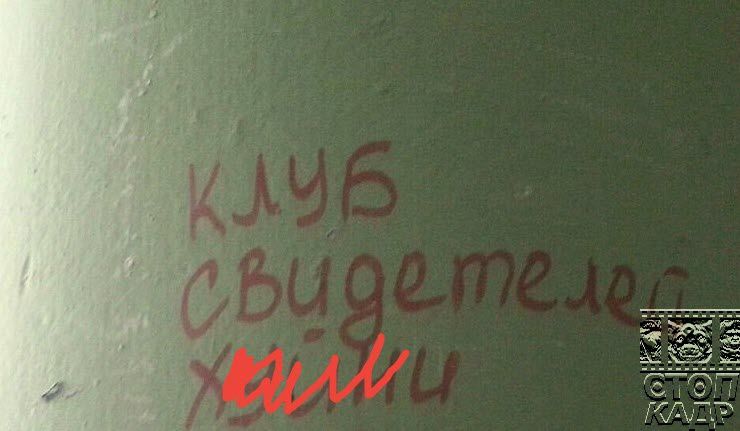 клуб
свидетелей
СТОП
КАДР